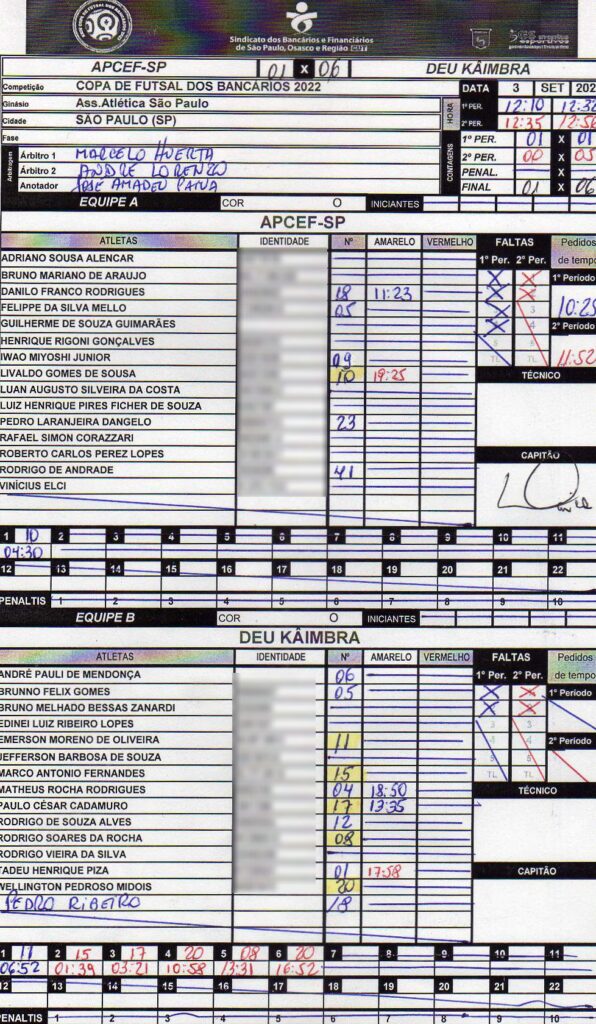 Sindicato dos Bancários e Financiários
de São Paulo, Osasco e Região CUT
APCEF-SP 01 X 06 DEU KÂIMBRA
Competição COPA DE FUTSAL DOS BANCÁRIOS 2022 DATA 3 SET 202
Ginásio Ass.Atlética São Paulo HORA 1º PER. 12:10 12:32
Cidade SÃO PAULO (SP) 2º PER. 12:35 12:56
Fase CONTAGENS 1º PER. 01 X 01
Arbitragem Árbitro 1 MARCELO HUERTA 2º PER. 00 X 05
Árbitro 2 ANDRE LORENZO PENAL. X
Anotador JOSE AMADEU PAIVA FINAL 01 X 06
EQUIPE A COR O INICIANTES
APCEF-SP
ATLETAS IDENTIDADE Nº AMARELO VERMELHO FALTAS Pedidos
1º Per. 2º Per. de tempo
ADRIANO SOUSA ALENCAR
BRUNO MARIANO DE ARAUJO 1º Período
DANILO FRANCO RODRIGUES 18 11:23
FELIPPE DA SILVA MELLO 05 3 10:25
GUILHERME DE SOUZA GUIMARÃES 4 2º Período
HENRIQUE RIGONI GONÇALVES 5 5
IWAO MIYOSHI JUNIOR 09 TL TL 11:52
LIVALDO GOMES DE SOUSA 10 19:25 TÉCNICO
LUAN AUGUSTO SILVEIRA DA COSTA
LUIZ HENRIQUE PIRES FICHER DE SOUZA
PEDRO LARANJEIRA DANGELO 23
RAFAEL SIMON CORAZZARI
ROBERTO CARLOS PEREZ LOPES CAPITÃO
RODRIGO DE ANDRADE 41
VINÍCIUS ELCI
1 10 2 3 4 5 6 7 8 9 10 11
04:30
12 13 14 15 16 17 18 19 20 21 22
PENALTIS 1 2 3 4 5 6 7 8 9 10
EQUIPE B COR O INICIANTES
DEU KÂIMBRA
ATLETAS IDENTIDADE Nº AMARELO VERMELHO FALTAS Pedidos
1º Per. 2º Per. de tempo
ANDRÉ PAULI DE MENDONÇA 06
BRUNNO FELIX GOMES 05 1º Período
BRUNO MELHADO BESSAS ZANARDI
EDINEI LUIZ RIBEIRO LOPES 3 3
EMERSON MORENO DE OLIVEIRA 11 4 4 2º Período
JEFFERSON BARBOSA DE SOUZA 5 5
MARCO ANTONIO FERNANDES 15 TL TL
MATHEUS ROCHA RODRIGUES 04 18:50 TÉCNICO
PAULO CÉSAR CADAMURO 17 13:35
RODRIGO DE SOUZA ALVES 12
RODRIGO SOARES DA ROCHA 08
RODRIGO VIEIRA DA SILVA
TADEU HENRIQUE PIZA 01 17:58 CAPITÃO
WELLINGTON PEDROSO MIDOIS 20
PEDRO RIBEIRO 18
1 11 2 15 3 17 4 20 5 08 6 20 7 8 9 10 11
06:52 01:39 03:21 10:58 13:31 16:52
12 13 14 15 16 17 18 19 20 21 22
PENALTIS 1 2 3 4 5 6 7 8 9 10